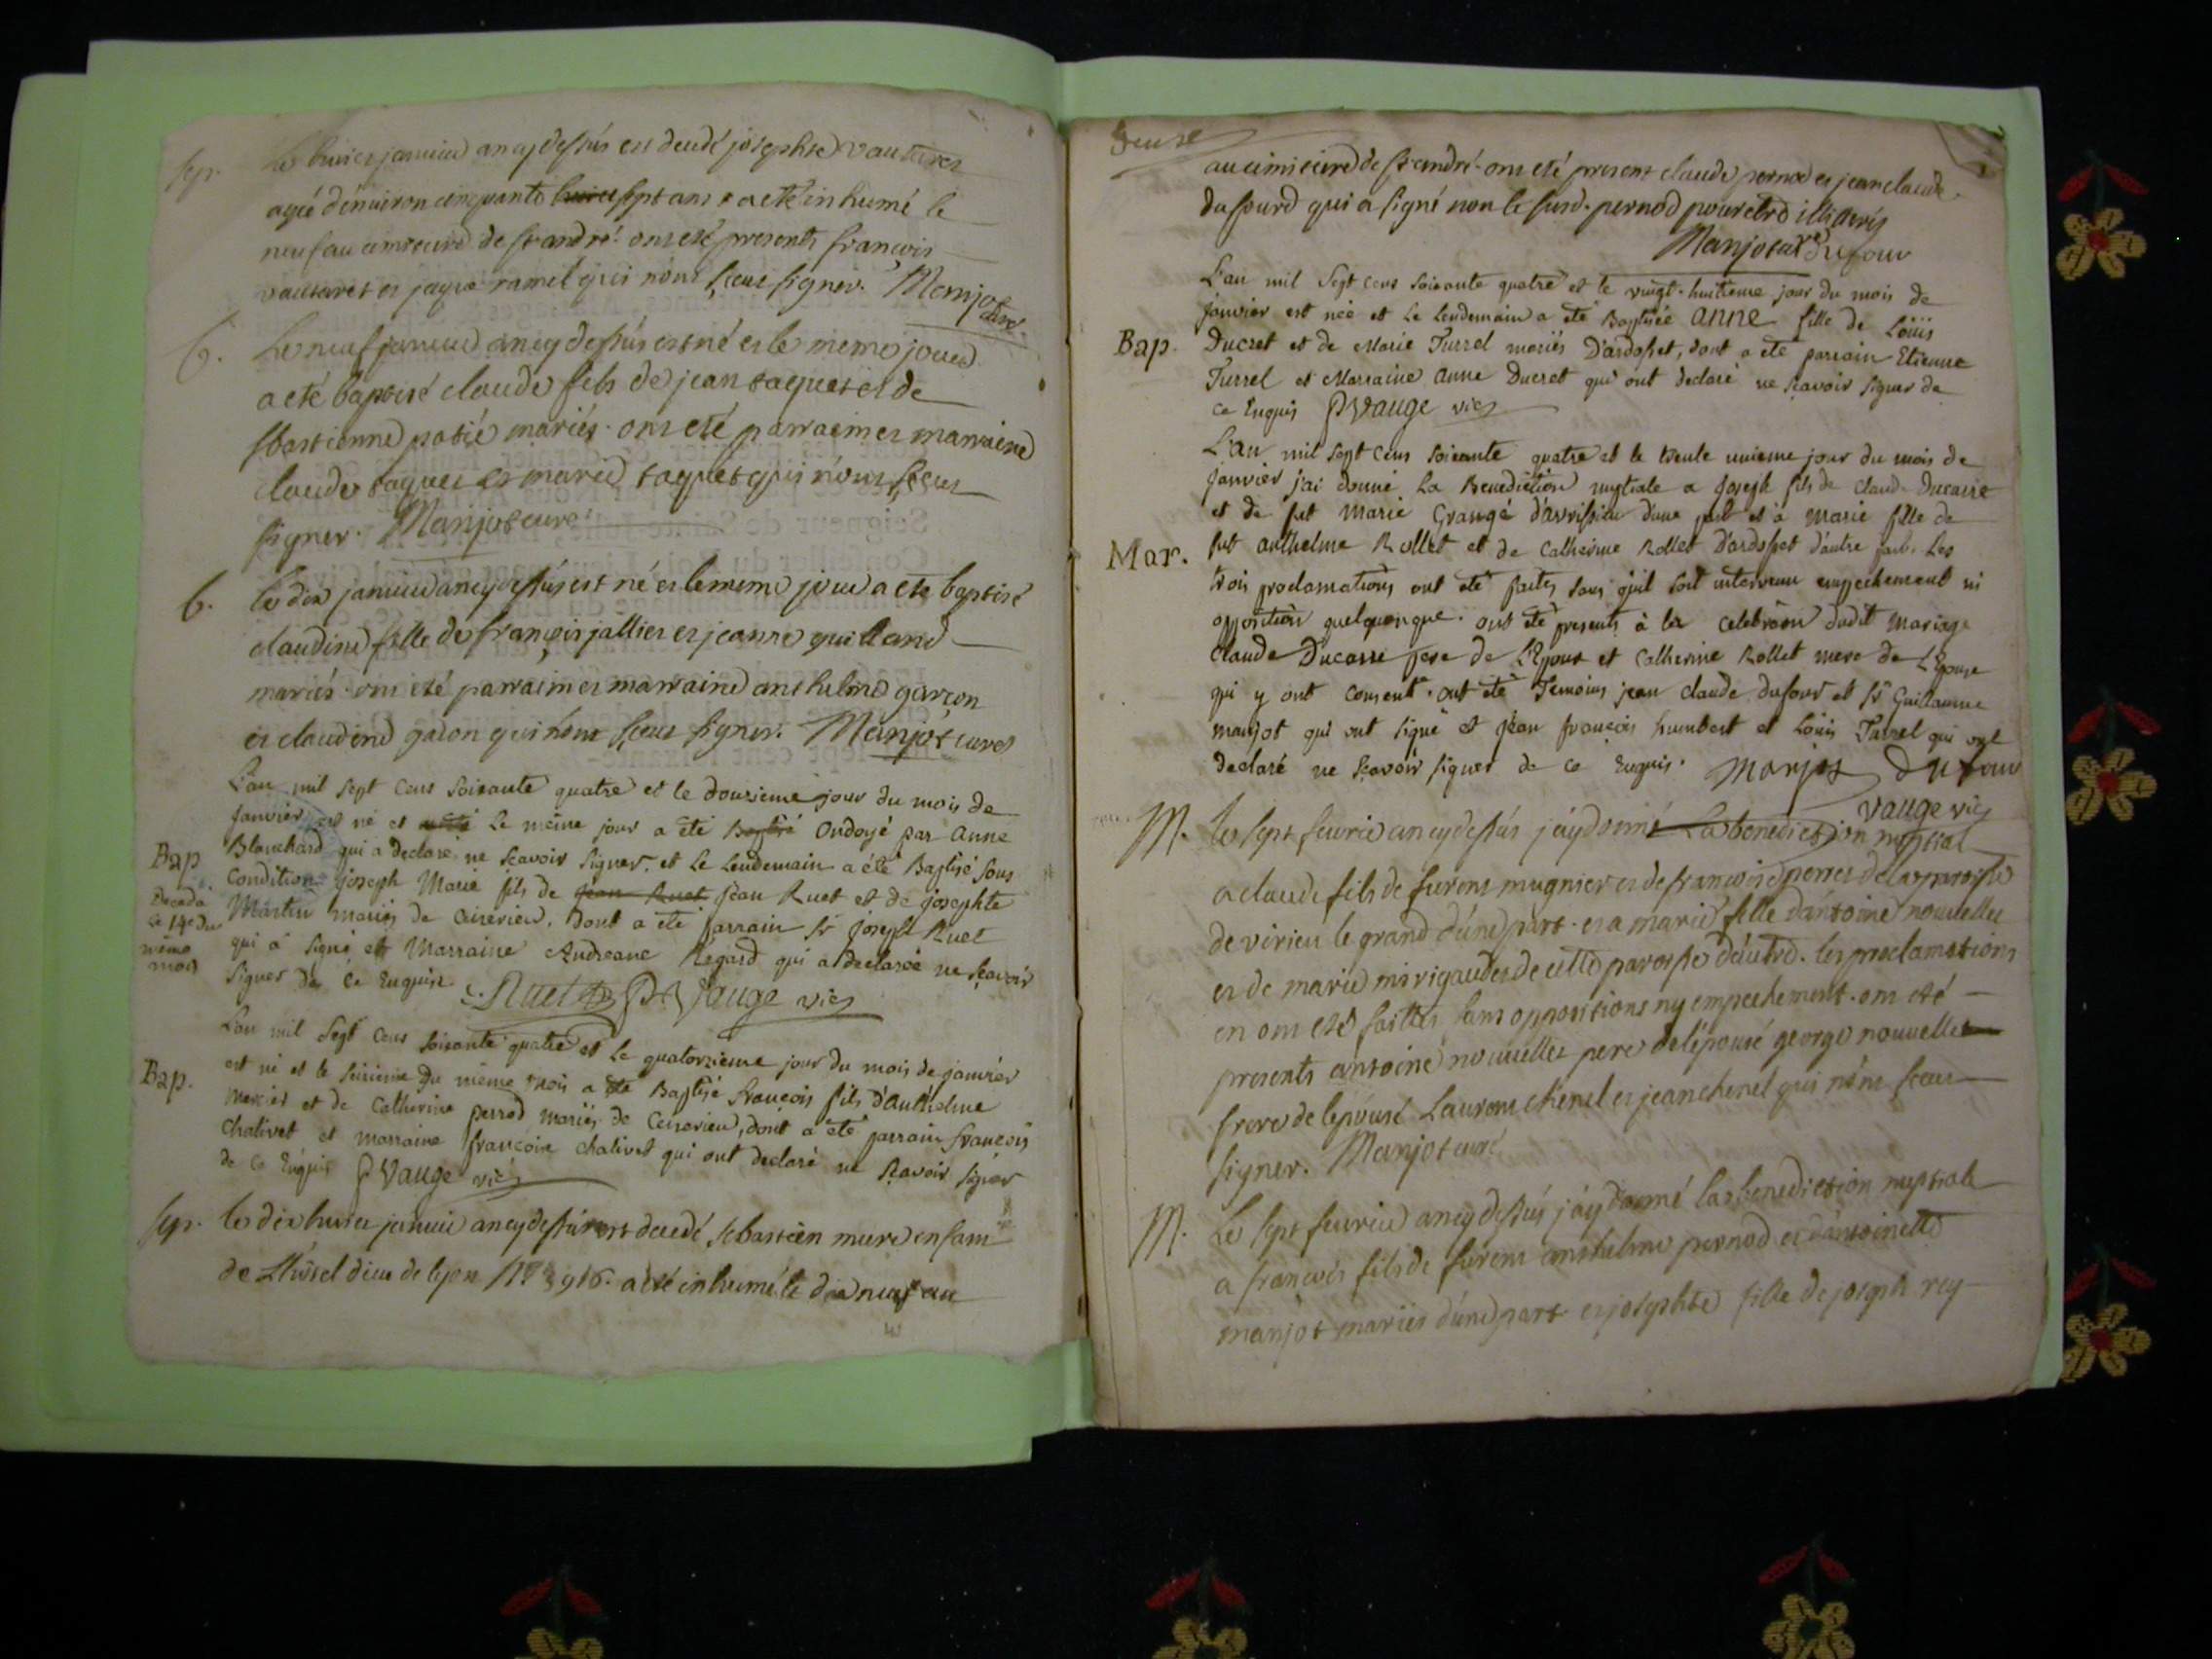 sep. Le huict janvier an cy dessus est decedé josephte vautaret
agée d'environ cinquante huict sept ans a eté inhumé le
neuf au cimetiere de st andré. ont eté presents françois
vautaret et jaque ramel qui n'ont sceus signer. Manjot
curé
b. Le neuf janvier an cy dessus est né et le meme jour
a eté baptisé claude fils de jean taquet et de
sbastienne patié mariés. ont eté parrain et marraine
claude taquet et marie taquet qui n'ont sceus
signer. Manjot curé
b. Le dix janvier an cy dessus est né et le meme jour a eté baptisé
claudine fille de françois jallier et jeanne quilland
mariés. ont eté parrain et marraine anthelme garçon
et claudine garon qui n'ont sceus signer. Manjot curé
L'an mil sept cens soixante quatre et le douzieme jour du mois de
Janvier est né et a été le même jour a été Baptisé Ondoyé par Anne
Bap Blanchard qui a declaré ne scavoir signer, et le lendemain a été Baptisé sous
condition joseph Marie fils de jean Ruet jean Ruet et de josephte
Decedé
le 14e du
même
mois
Martin mariés de Ceizerieu, dont a été parrain Sr joseph Ruet
qui a signé et Marraine Andreane Regard qui a declarée ne scavoir
signer de ce Enquise. Ruet P Vauge vic
L'an mil sept cens soixante quatre et le quatorzieme jour du mois de janvier
Bap. est né et le seizieme du même mois a été Baptisé François fils d'Anthelme
mercier et de Catherine perrod mariés de Ceizerieu, dont a été parrain François
Chalivet et marraine françoise chalivet qui ont declaré ne scavoir signer
de ce Enquis P Vauge vic
sep. le dix huict janvier an cy dessus est decedé sebastien mure enfant
de L'hotel dieu de lyon No 3916. a eté inhumé le dix neuf au
au cimitiere de st andré. ont eté present claude pernod et jean claude
dufourd qui a signé non le susd. pernod pour etre illitteris
Manjot curé Dufour
L'an mil sept cens soixante quatre et le vingt-huitieme jour du mois de
janvier est née et le lendemain a été Baptisée Anne fille de Loüis
Bap. Ducret et de Marie Turrel mariés D'ardosset, dont a été parrain Etienne
Turrel et Marraine Anne Ducret qui ont declaré ne scavoir signer de
ce Enquis P Vauge vic
L'an mil sept cens soixante quatre et le trente unieme jour du mois de
janvier j'ai donné La Benediction nuptiale a Joseph fils de Claude Ducarre
et de fut Marie Grangé d'avrissieu d'une part et a Marie fille de
Mar. fut Anthelme Rollet et de Catherine Rollet D'ardosset d'autre part. Les
trois proclamations ont été faites sans qu'il soit intervenu empechement ni
opposition quelquonque. ont été presents à la celebraõn dudit Mariage
Claude Ducarre pere de L'Epoux et Catherine Rollet mere de L'Epouse
qui y ont consenti. ont été Temoins jean claude Dufour et Sr Guillaume
manjot qui ont signé et jean françois humbert et Loüis Turrel qui ont
declaré ne scavoir signer de ce Enquis. Manjot Dufour
Vauge vic
M. Le sept fevrier an cy dessus j'ay donné La benediction nuptial
a claude fils de furent mugnier et de françoise perret de la paroisse
de virieu le grand d'une part et a marie fille d'antoine nouvellet
et de marie mirigaudet de cette paroisse d'autre. les proclamations
en ont eté faittes sans oppositions ny empechement. ont eté
presents antoine nouvellet pere de lépouse george nouvellet
frere de lepouse Laurent chenel et jean chenel qui n'ont sceus
signer. Manjot curé
M. Le sept fevrier an cy dessus j'ay donné la benediction nuptiale
a françois fils de furent anthelme pernod et d'antoinette
manjot mariés d'une part et josephte fille de joseph rey